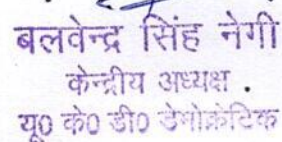 बलवेन्द्र सिंह नेगी
केन्द्रीय अध्यक्ष .
यू० के० डी० डेमोक्रेटिक